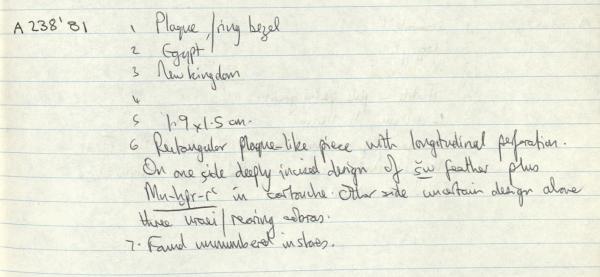 A 238'81
1 Plaque/ring bezel
2 Egypt
3 New kingdom
4
5 1.9 x 1.5 cm.
6 Rectangular plaque-like piece with longitudinal perforation.
On one side deeply incised design of šw feather plus
Mn-ḫpr-rʿ in cartouche. Other side uncertain design above
three uraei/rearing cobras.
7. Found unnumbered in stores.